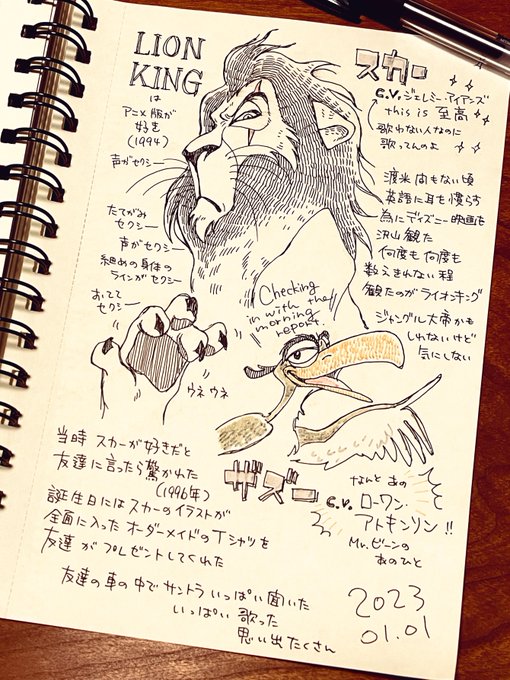 LION
KING
は
アニメ版が
好き
(1994)
声がセクシー
たてがみ
セクシー
声がセクシー
細めの身体の
ラインがセクシー
おてて
セクシー
ウネウネ
スカー
C.V. ジェレミー・アイアンズ
this is 至高
歌わない人なのに
歌ってんのよ
渡米 間もない頃
英語に耳を慣らす
為にディズニー映画を
沢山観た
何度も何度も
数えきれない程
観たのがライオンキング
ジャングル大帝かも
しれないけど
気にしない
Checking
in with the
morning
report.
ザズー
なんと あの
C.V. ローワン・
アトキンソン!!
Mr.ビーンの
あのひと
当時 スカーが好きだと
友達に言ったら驚かれた
(1996年)
誕生日にはスカーのイラストが
全面に入ったオーダーメイドのTシャツを
友達がプレゼントしてくれた
友達の車の中でサントラいっぱい聞いた
いっぱい歌った
思い出たくさん
2023
01.01